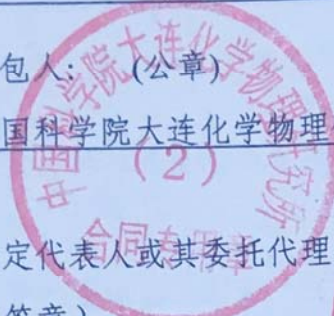 包人: (公章)
国科学院大连化学物理
定代表人或其委托代理
签章)
中国科学院大连化学物理研究所
(2)
合同专用章